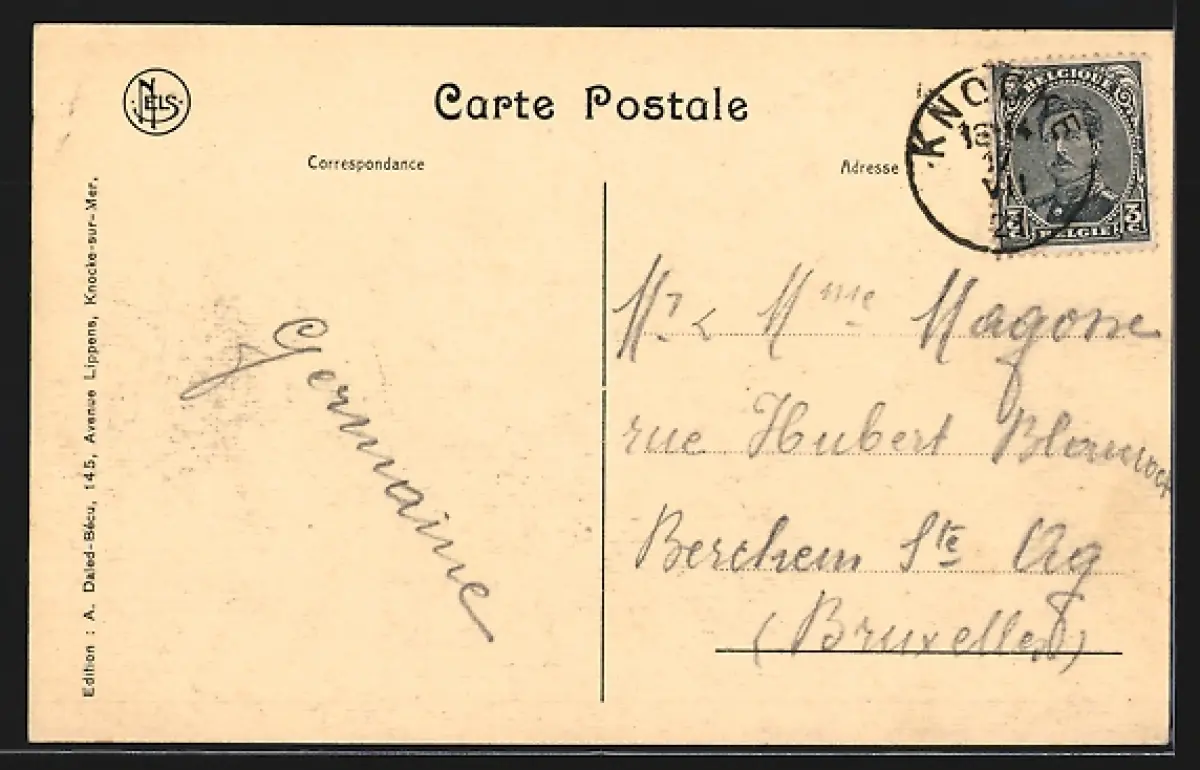 NELS
Carte Postale
Correspondance
Adresse
KNOCKE
BELGIQUE
3c 3c
BELGIE
Edition : A. Daled-Bécu, 145, Avenue Lippens, Knocke-sur-Mer.
Germaine
Mr & Mme Magone
rue Hubert
Berchem Ste Ag
(Bruxelles)